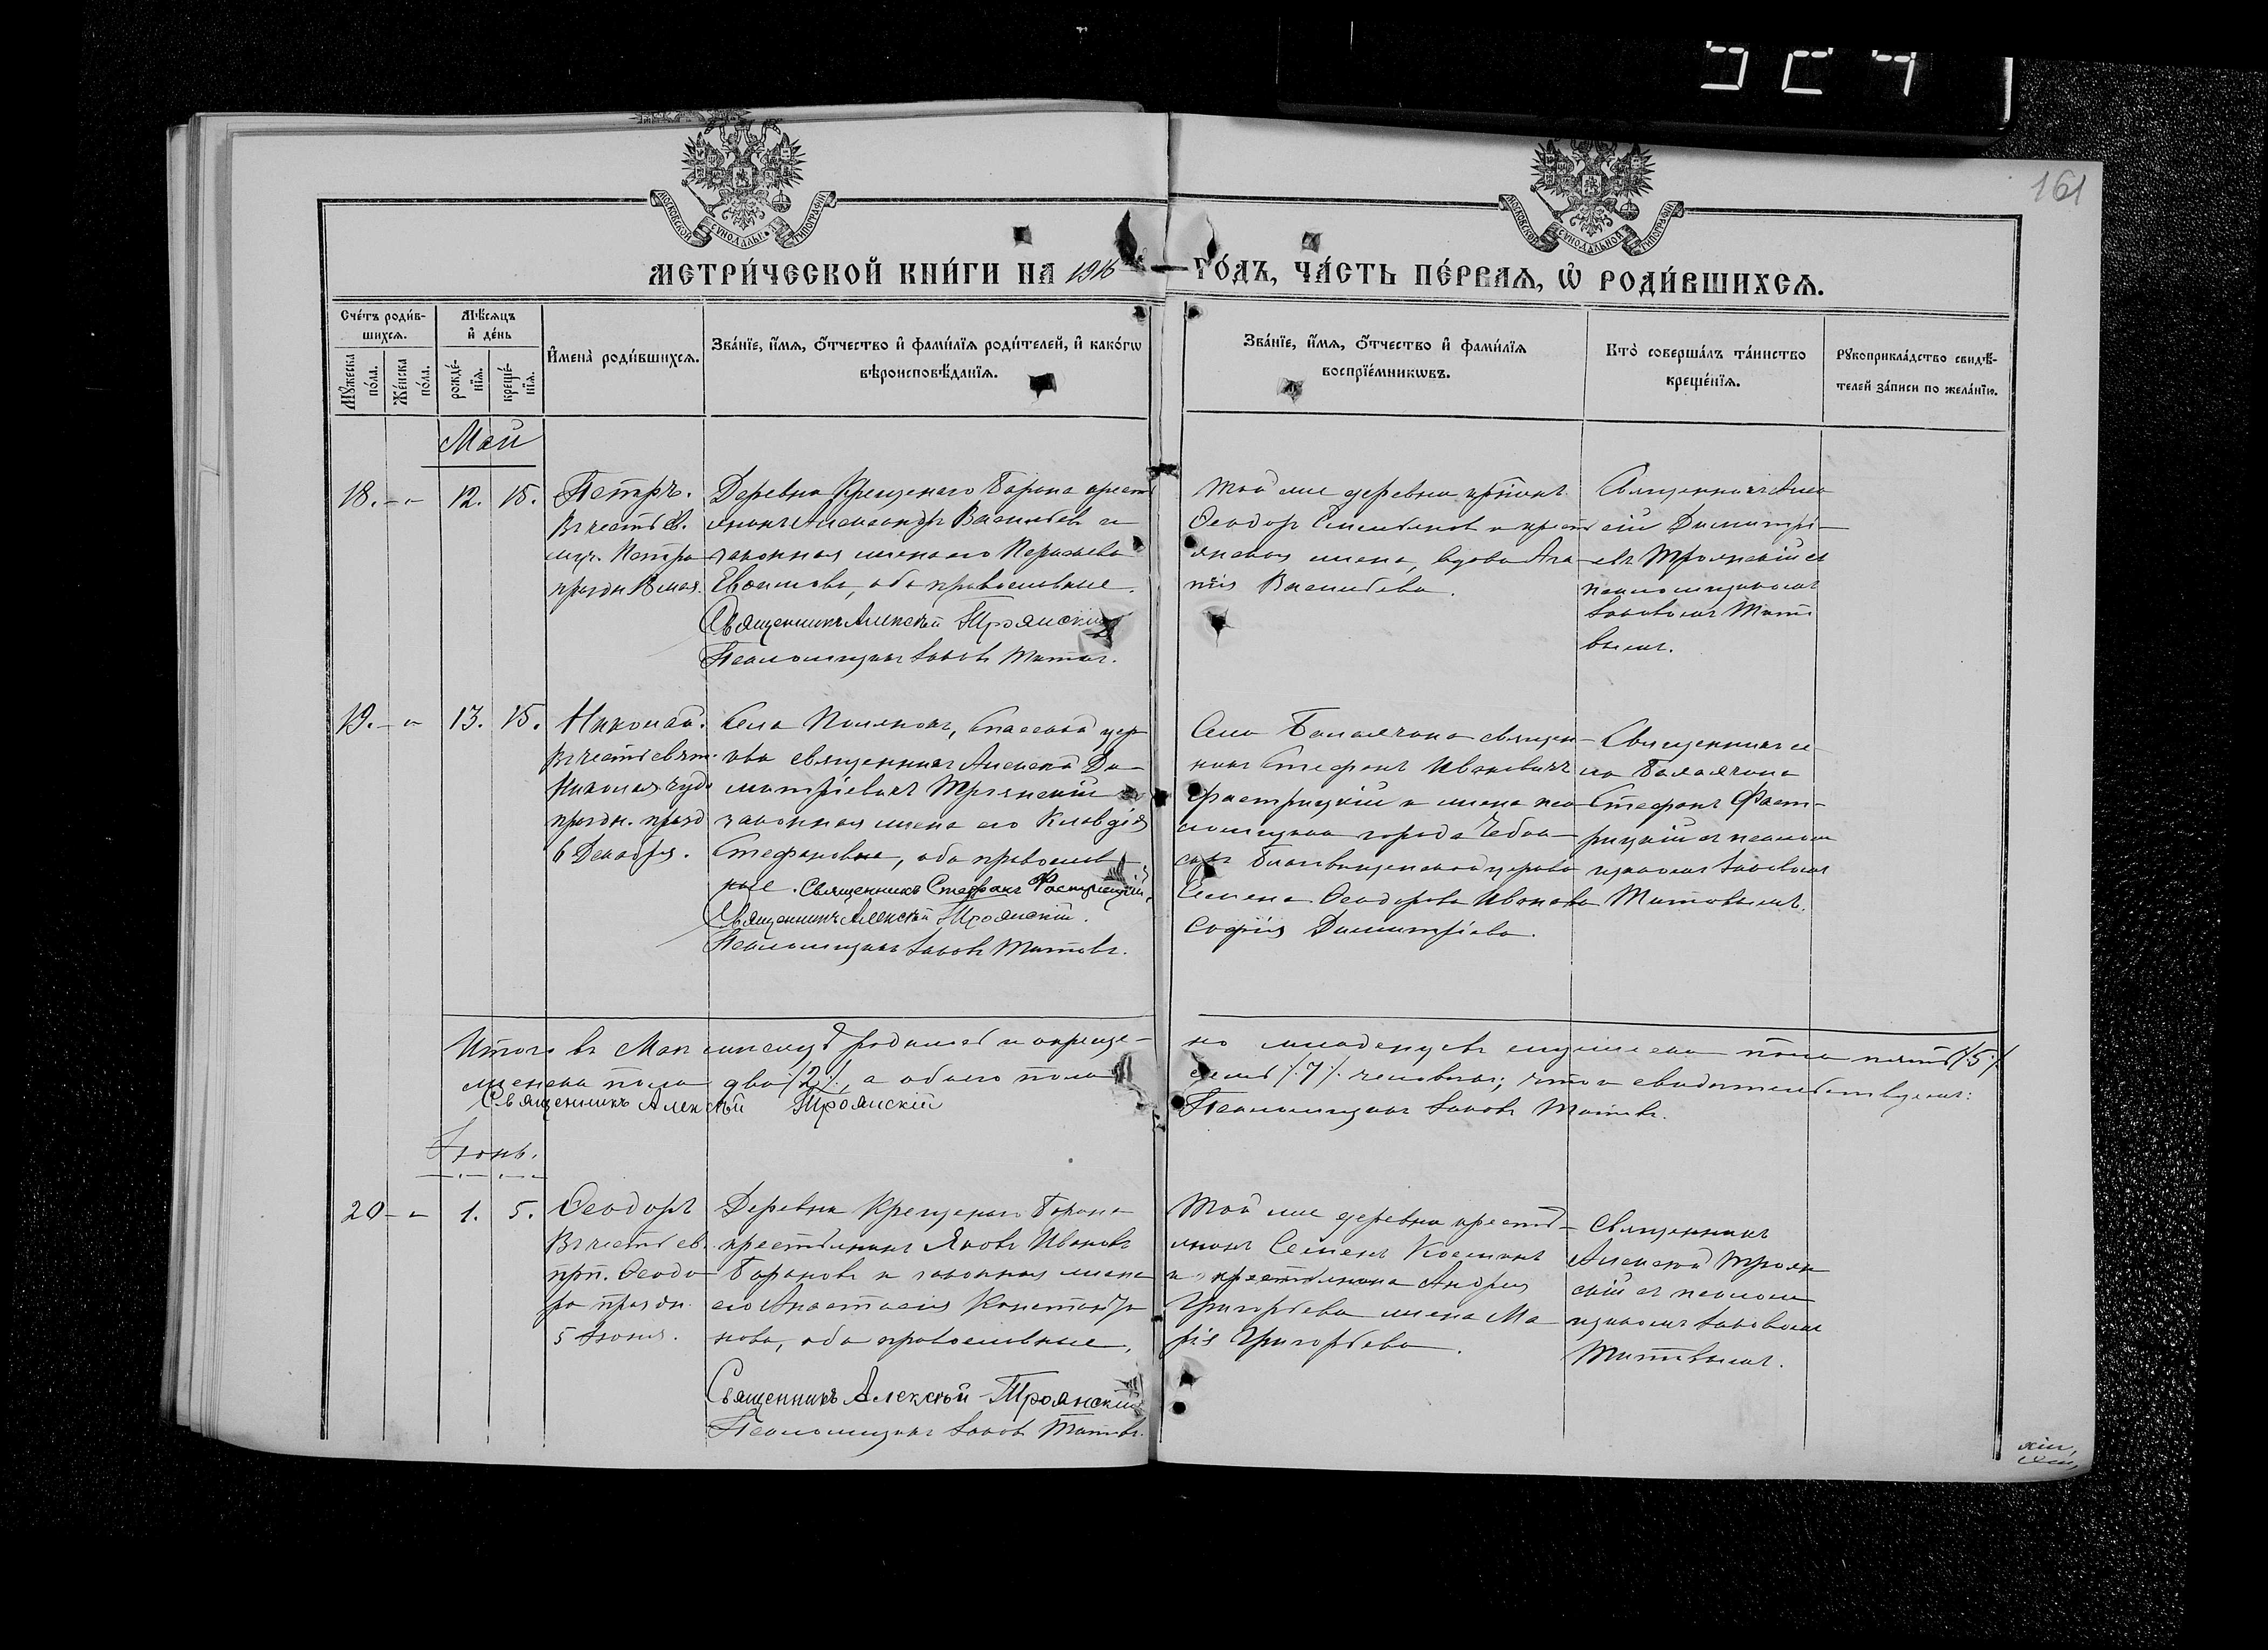 924
161
МОСКОВСКОЙ СѴНОДАЛЬНОЙ ТИПОГРАФІИ
МОСКОВСКОЙ СѴНОДАЛЬНОЙ ТИПОГРАФІИ
МЕТРИ́ЧЕСКОЙ КНИ́ГИ НА 1916 ГО́ДЪ, ЧА́СТЬ ПЕ́РВАѦ, Ѡ҆ РОДИ́ВШИХСѦ.
Сче́тъ роди́в-
шихсѧ.
Мꙋ́жеска по́ла.
Же́нска по́ла.
Мѣ́сѧцъ
и҆ де́нь
рожде́-
нїѧ.
креще́-
нїѧ.
И҆мена̀ роди́вшихсѧ.
Зва́нїе, и҆́мѧ, ѻ҆́тчество и҆ фами́лїѧ роди́телей, и҆ како́гѡ
вѣроисповѣ́данїѧ.
Зва́нїе, и҆́мѧ, ѻ҆́тчество и҆ фами́лїѧ
воспрїе́мникѡвъ.
Кто̀ соверша́лъ та́инство
креще́нїѧ.
Рꙋкоприкла́дство свидѣ́-
телей за́писи по жела́нїю.
Май
18. - - 12. 15.
Петръ.
Въ честь св.
муч. Петра
праздн. 18 мая.
Деревни Крещенаго Барана крест
янинъ Александръ Васильевъ и
законная жена его
Евфимова, оба православные.
Священникъ Алексѣй Троянскій
Псаломщикъ Іаковъ Титовъ.
Той же деревни
Ѳеодоръ и крест
янская жена, вдова Ага
пія Васильева.
Священникъ Алек
сѣй Димитрі-
евъ Троянскій съ
псаломщикомъ
Іаковомъ Тито
вымъ.
19. - - 13. 15.
Николай.
Въ честь свят.
Николая чудо
праздн.
6 Декабря.
Села Полянокъ, Спасской цер
кви священникъ Алексѣй Ди-
митріевичъ Троянскій и
законная жена его Клавдія
Стефановна, оба православ
ные. Священникъ Стефанъ Фастрицкій,
Священникъ Алексѣй Троянскій.
Псаломщикъ Іаковъ Титовъ.
Села священ-
никъ Стефанъ Ивановичъ
Фастрицкій и жена пса
ломщика города Чебок
саръ Благовѣщенской церкви
Семена Ѳеодорова Иванова
Софія Димитріева.
Священникъ се
ла
Стефанъ Фаст-
рицкій съ псалом
щикомъ Іаковомъ
Титовымъ.
Итого въ Маѣ мѣсяцѣ родилось и окреще-
но младенцевъ мужеска пола пять /5/
женска пола два /2/, а обоего пола
семь /7/ человѣкъ; что и свидѣтельствуемъ:
Священникъ Алексѣй Троянскій
Псаломщикъ Іаковъ Титовъ.
Іюнь.
20 - - 1. 5.
Ѳеодоръ
Въ честь св.
прп. Ѳеодо
ра праздн.
5 Іюня.
Деревни Крещенаго Барана
крестьянинъ Яковъ Ивановъ
Барановъ и законная жена
его Анастасія Константи
нова, оба православные.
Священникъ Алексѣй Троянскій
Псаломщикъ Іаковъ Титовъ.
Той же деревни кресть-
янинъ Семенъ Косминъ
и крестьянина Андрея
Григорьева жена Ма
рія Григорьева.
Священникъ
Алексѣй Троян
скій съ псалом
щикомъ Іаковомъ
Титовымъ.